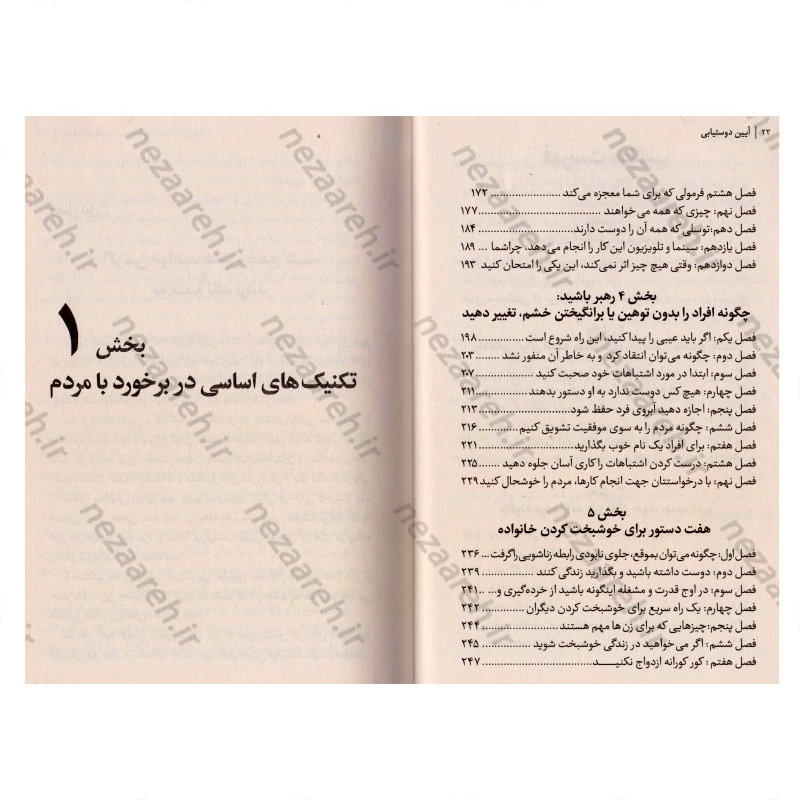 ۲۲ | آیین دوستیابی
فصل هشتم فرمولی که برای شما معجزه می‌کند ..................... ۱۷۲
فصل نهم: چیزی که همه می خواهند ............................ ۱۷۷
فصل دهم:توسلی که همه آن را دوست دارند ..................... ۱۸۴
فصل یازدهم: سینما و تلویزیون این کار را انجام می‌دهد، چراشما ... ۱۸۹
فصل دوازدهم: وقتی هیچ چیز اثر نمی‌کند، این یکی را امتحان کنید ۱۹۳
بخش ۴ رهبر باشید:
چگونه افراد را بدون توهین یا برانگیختن خشم، تغییر دهید
فصل یکم: اگر باید عیبی را پیدا کنید، این راه شروع است ........... ۱۹۸
فصل دوم: چگونه می‌توان انتقاد کرد و به خاطر آن منفور نشد ........ ۲۰۳
فصل سوم: ابتدا در مورد اشتباهات خود صحبت کنید .............. ۲۰۷
فصل چهارم: هیچ کس دوست ندارد به او دستور بدهند ............ ۲۱۱
فصل پنجم: اجازه دهید آبروی فرد حفظ شود .................... ۲۱۳
فصل ششم: چگونه مردم را به سوی موفقیت تشویق کنیم .......... ۲۱۶
فصل هفتم: برای افراد یک نام خوب بگذارید ..................... ۲۲۱
فصل هشتم: درست کردن اشتباهات را کاری آسان جلوه دهید ....... ۲۲۵
فصل نهم: با درخواستتان جهت انجام کارها، مردم را خوشحال کنید ۲۲۹
بخش ۵
هفت دستور برای خوشبخت کردن خانواده
فصل اول: چگونه می‌توان بموقع، جلوی نابودی رابطه زناشویی را گرفت ... ۲۳۶
فصل دوم: دوست داشته باشید و بگذارید زندگی کنند ............. ۲۳۹
فصل سوم: در اوج قدرت و مشغله اینگونه باشید از خرده‌گیری و... ... ۲۴۱
فصل چهارم: یک راه سریع برای خوشبخت کردن دیگران .......... ۲۴۲
فصل پنجم:چیزهایی که برای زن ها مهم هستند ................. ۲۴۴
فصل ششم: اگر می‌خواهید در زندگی خوشبخت شوید ............. ۲۴۵
فصل هفتم: کور کورانه ازدواج نکنیــــد ....................... ۲۴۷
بخش ۱
تکنیک‌های اساسی در برخورد با مردم
nezaareh.ir